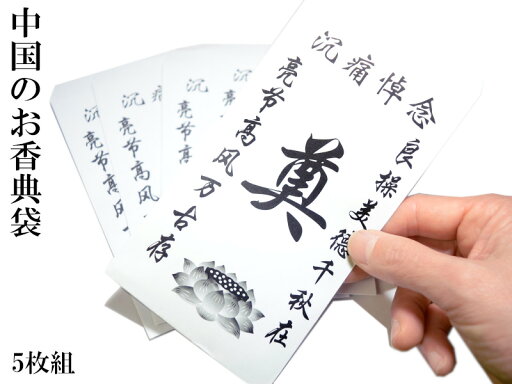 中国のお香典袋
沉痛悼念
良操美德千秋在
奠
亮节高风万古存
沉痛
亮节高风万
沉
亮节高风
沉
亮节高
沉
亮节
5枚組